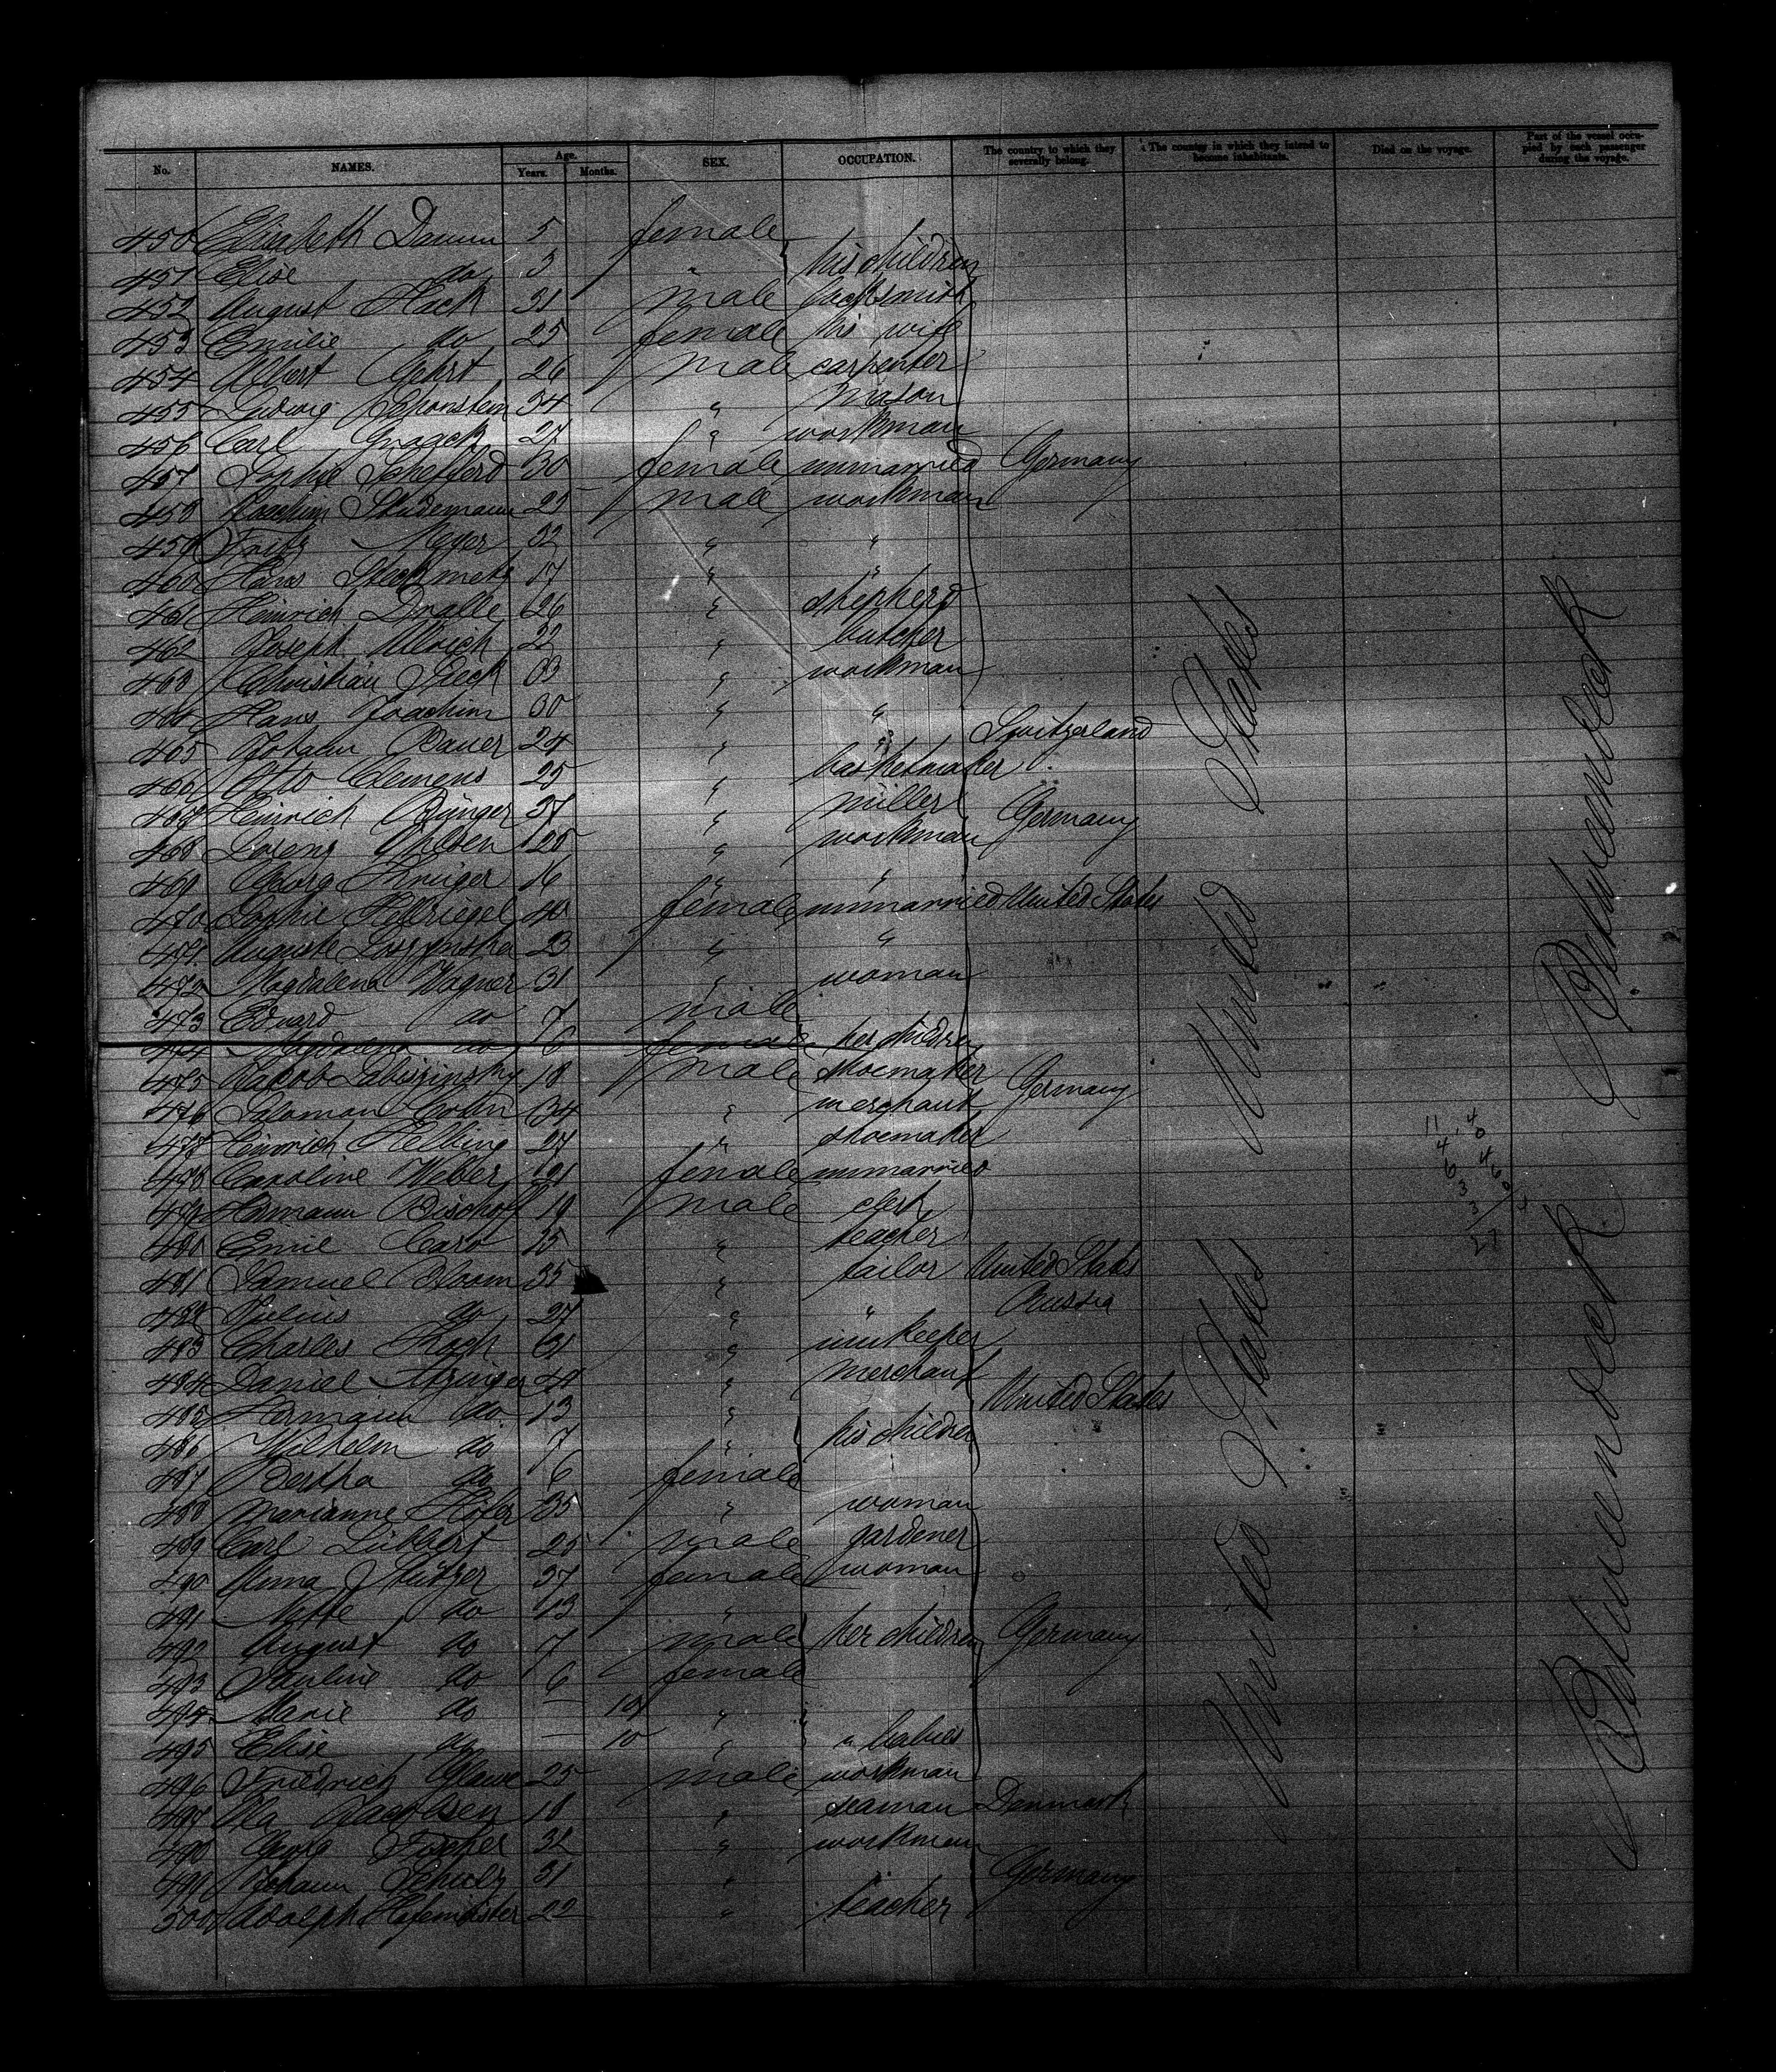 No. NAMES. Age. Years. Months. SEX. OCCUPATION. The country to which they severally belong. The country in which they intend to become inhabitants. Died on the voyage. Part of the vessel occupied by each passenger during the voyage.
450 Elisabeth Damm 5 female
451 Elise do 3 " his children
452 August Hack 31 male locksmith
453 Emilie do 25 female his wife
454 Albert Gehrt 26 male carpenter
455 Ludwig 34 " mason
456 Carl 27 " workman
457 Sophie 30 female unmarried Germany
458 Joachim Studemann 23 male workman
459 Fritz Meyer 32 " "
460 Hans Steckmetz 17 " "
461 Heinrich Dralle 26 " shepherd
462 Joseph Ulrich 22 " butcher
463 Christian Dieck 33 " workman
464 Hans Joachim 30 " "
465 Johann Bauer 24 " " Switzerland
466 Otto Clemens 25 " basketmaker
467 Heinrich Bünger 37 " miller Germany
468 Lorenz Ohlsen 28 " workman
469 Georg Krüger 16 " "
470 Sophie Hellriegel 40 female unmarried United States
471 Auguste 23 " "
472 Magdalena Wagner 31 " woman
473 Eduard do 7 male
474 Magdalena do 6 female her children
475 Jakob Labiszinsky 18 male shoemaker Germany
476 Salomon Cohn 34 " merchant
477 Heinrich Helbing 27 " shoemaker
478 Caroline Weber 21 female unmarried
479 Hermann Bischoff 19 male clerk
480 Emil Caro 25 " teacher
481 Samuel Bloom 35 " tailor United States
482 Julius do 27 " " Russia
483 Charles 31 " innkeeper
484 Daniel " merchant
485 Hermann do 13 " United States
486 Wilhelm do 7 " his children
487 Bertha do 6 female
488 Marianne Höfer 35 " woman
489 Carl Lübbert 25 male gardener
490 Anna Stützer 37 female woman
491 do 13 "
492 August do 7 male her children Germany
493 Pauline do 6 female
494 Marie do — 10 "
495 Elise do — 10 " " babies
496 Friedrich Glawe 25 male workman
497 Ola 18 " seaman Denmark
498 Georg Fischer 32 " workman
499 Johann Schulz 31 " Germany
500 Adolph Hofemeister 22 " teacher
United States
United States
Betweendeck
Betweendeck